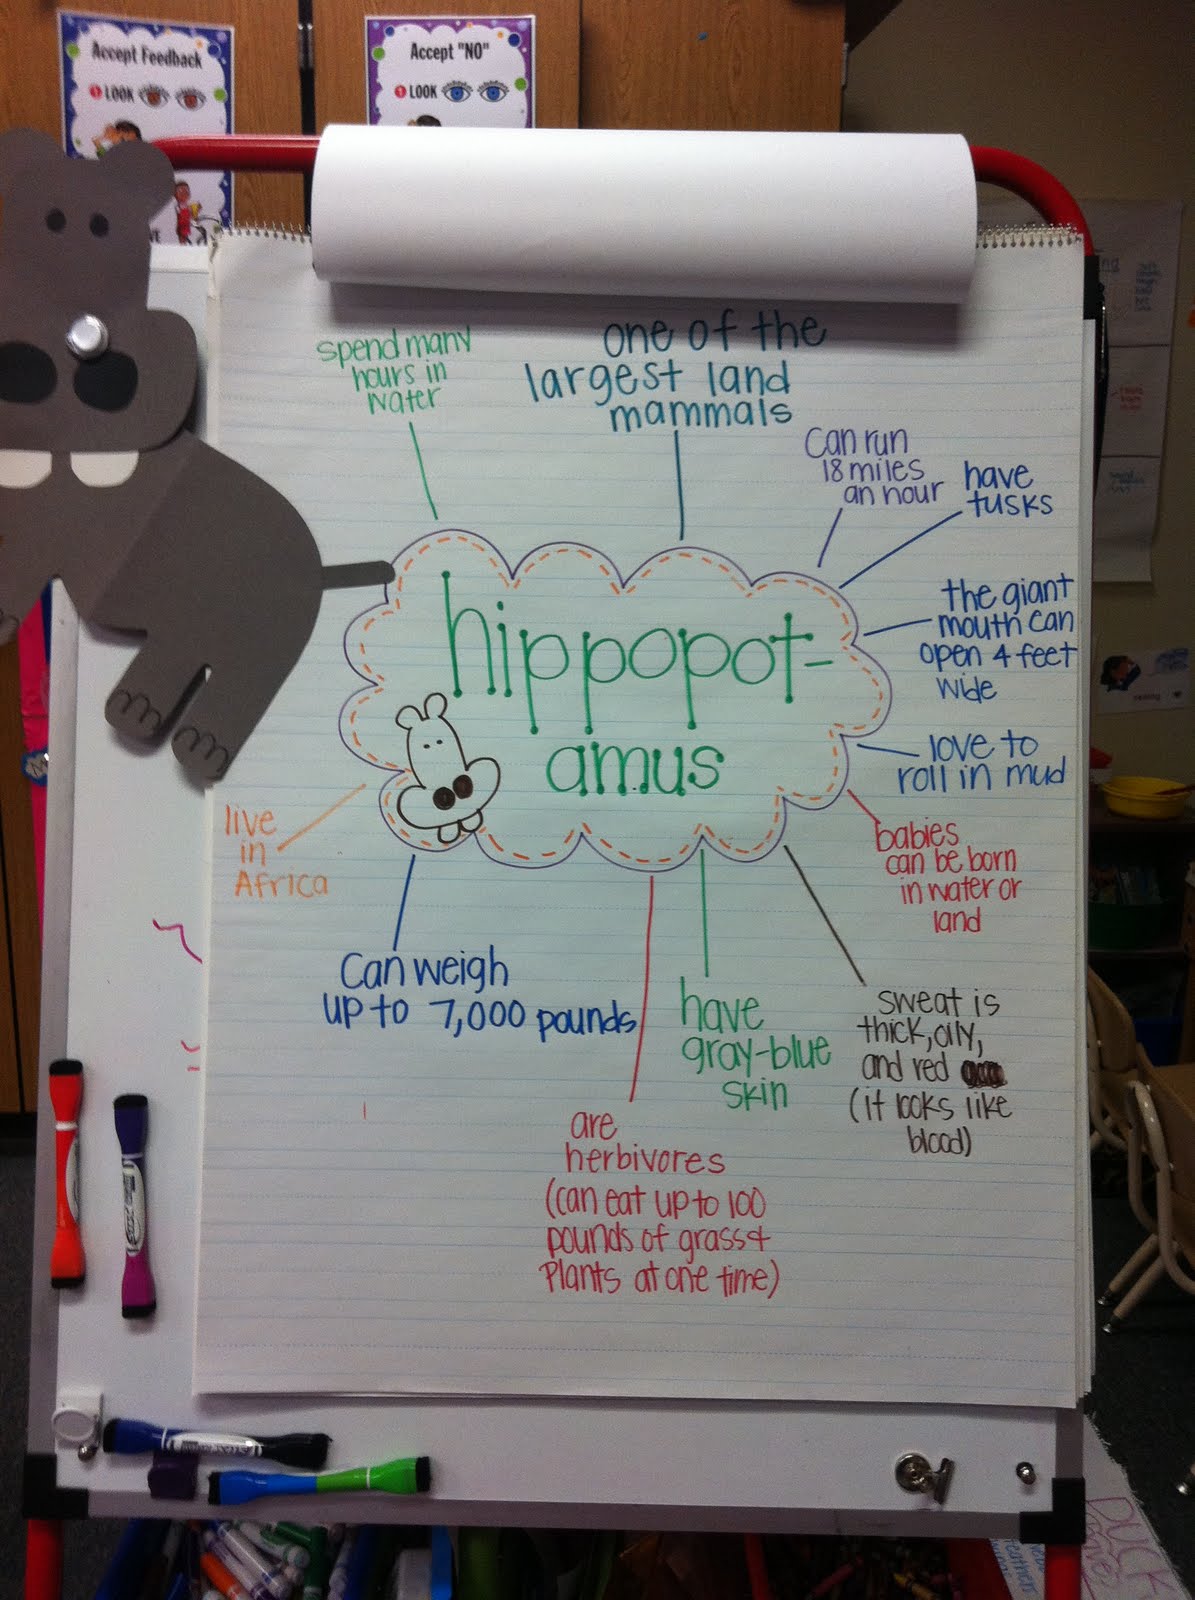 Accept Feedback
1 LOOK
Accept "NO"
1 LOOK
spend many
hours in
water
one of the
largest land
mammals
Can run
18 miles
an hour
have
tusks
the giant
mouth can
open 4 feet
wide
hippopot-
amus
love to
roll in mud
babies
can be born
in water or
land
live
in
Africa
Can weigh
up to 7,000 pounds
have
gray-blue
skin
sweat is
thick, oily,
and red
(it looks like
blood)
are
herbivores
(can eat up to 100
pounds of grass +
Plants at one time)
DUCK